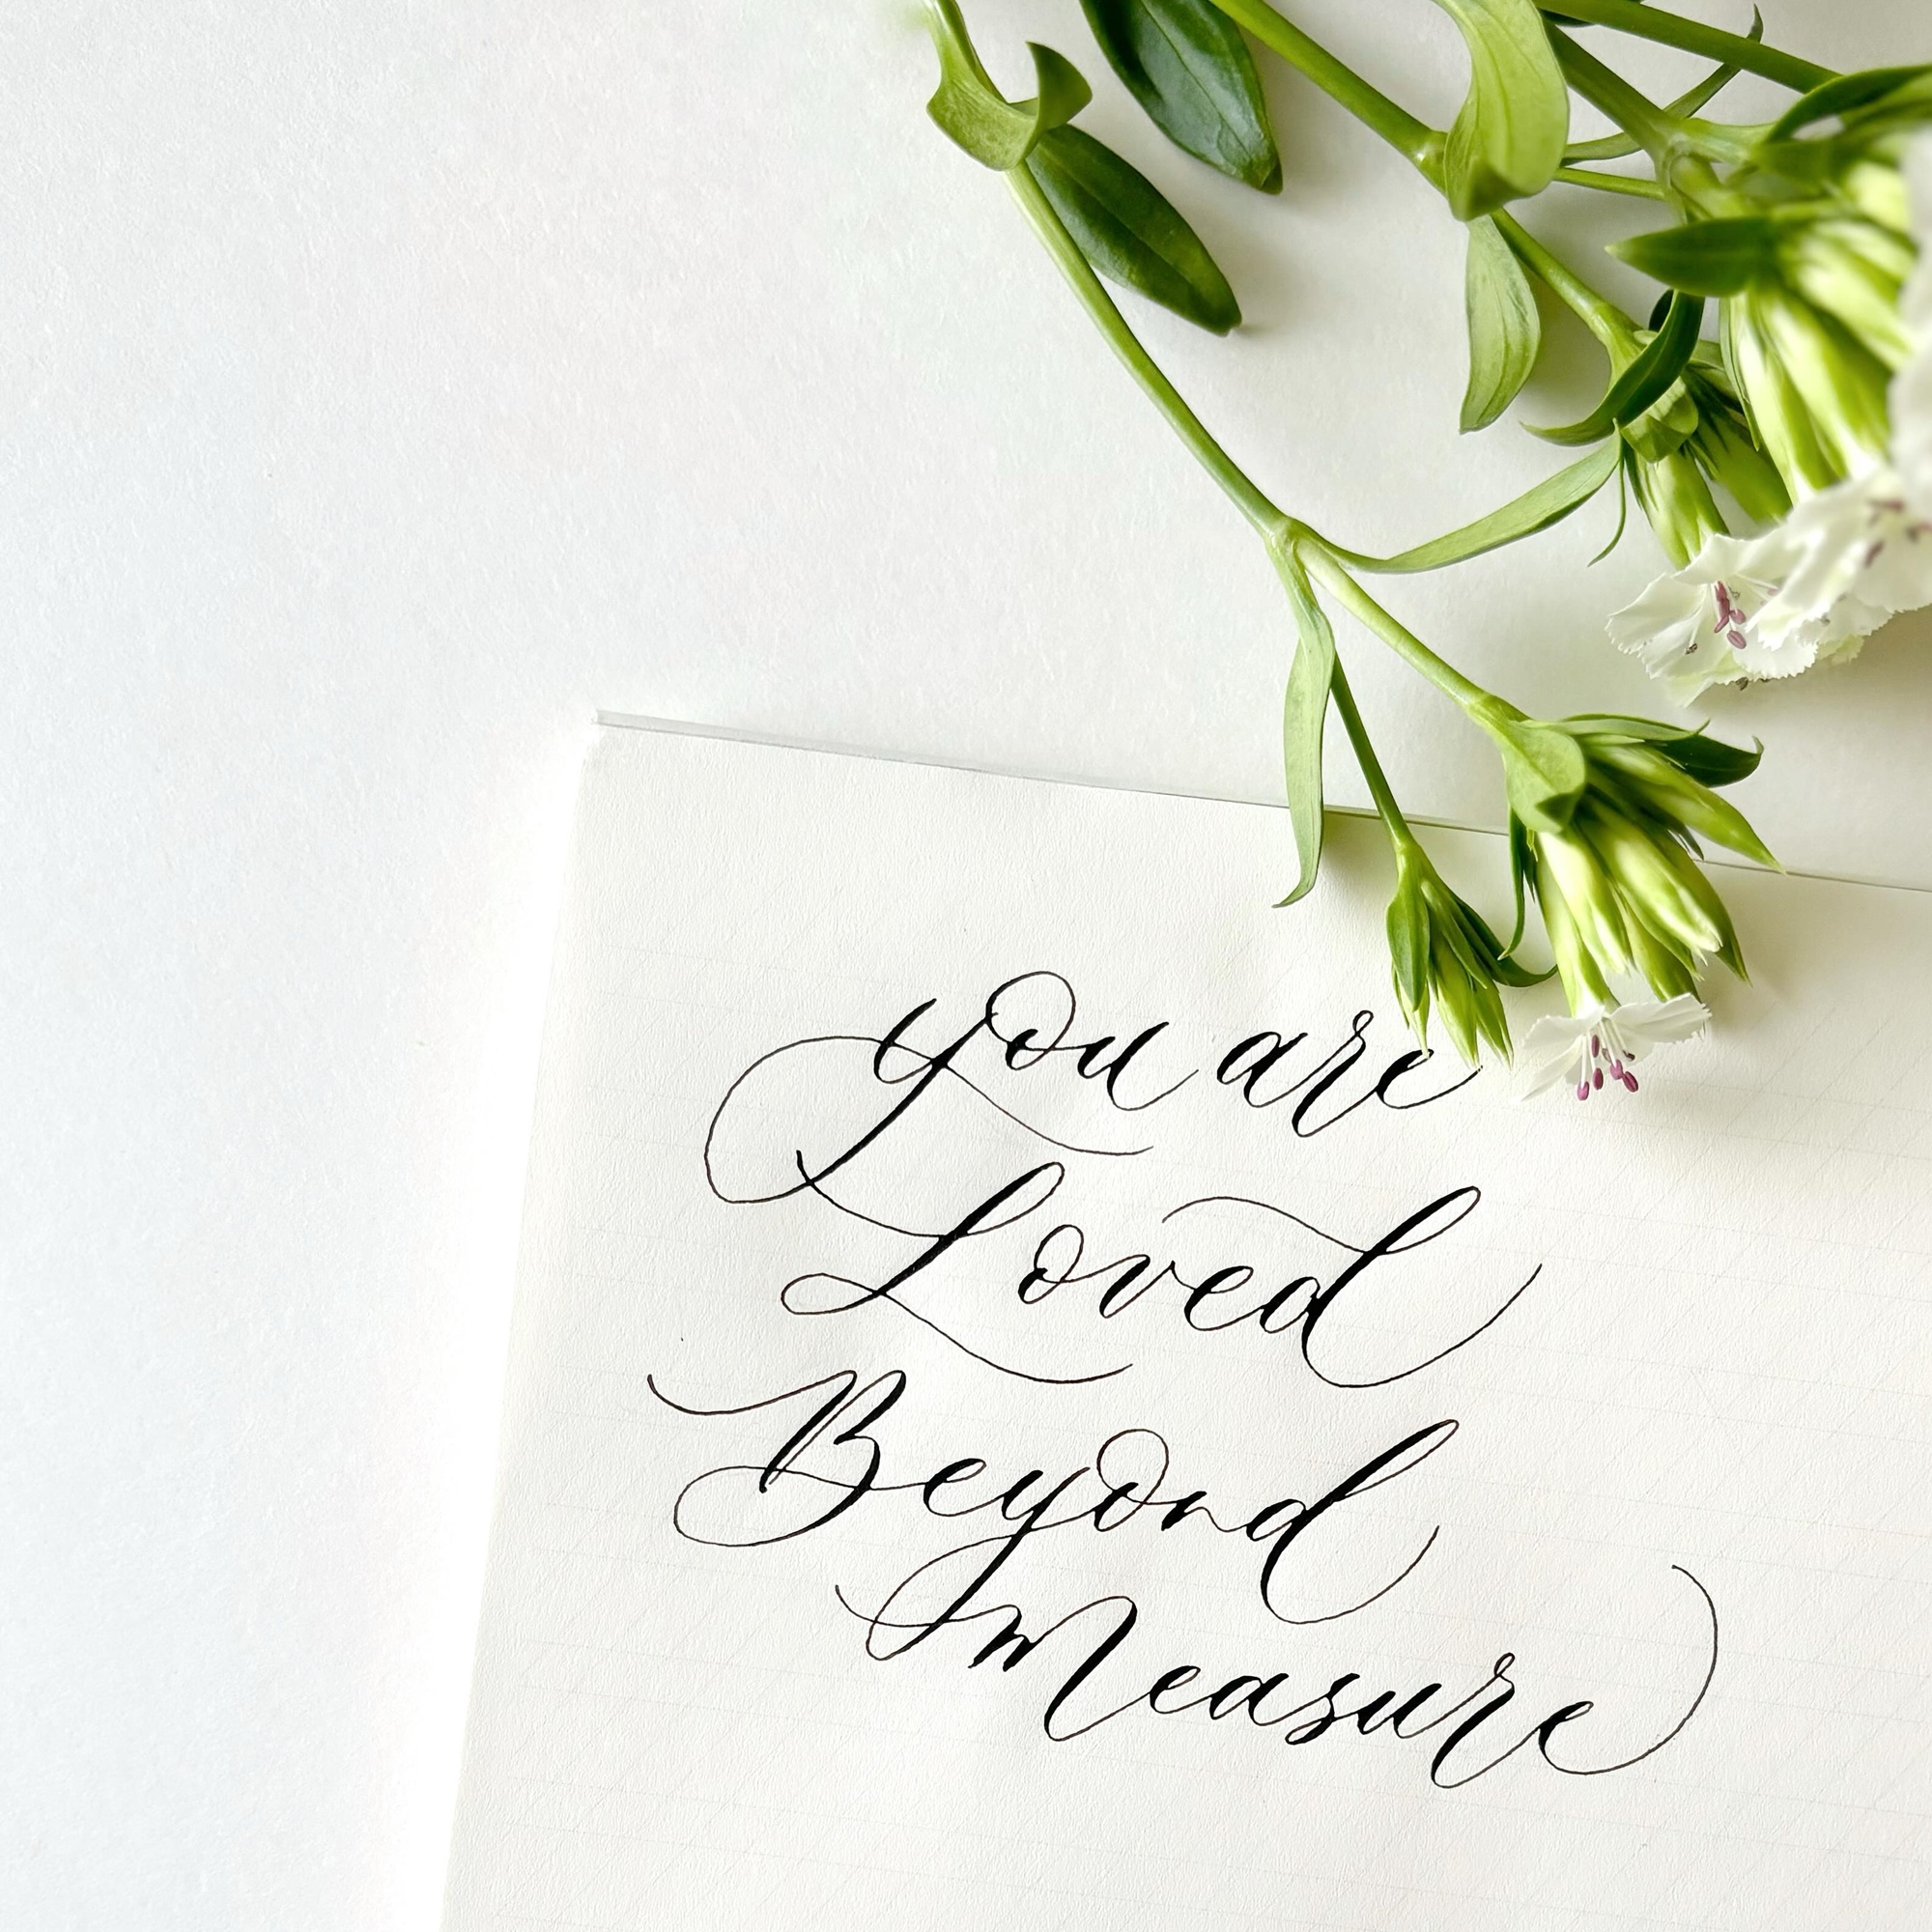 you are
Loved
Beyond
Measure